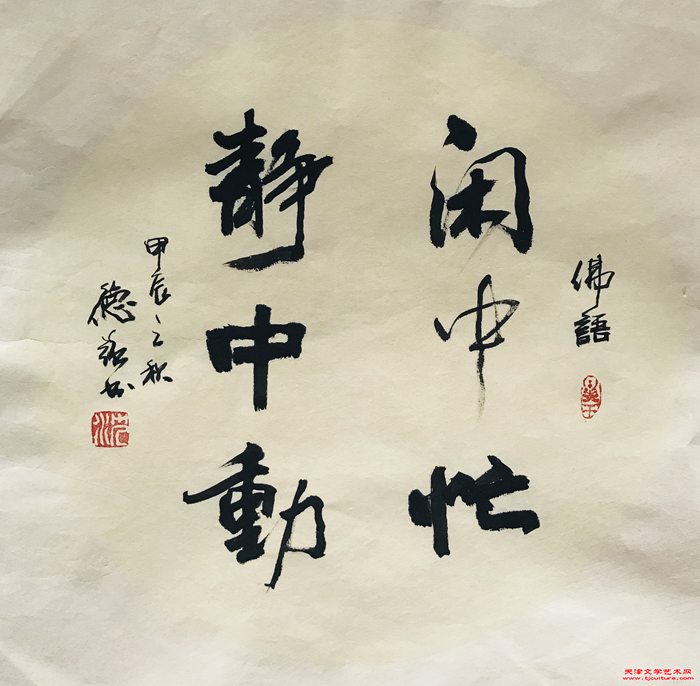 佛語
闲中忙
静中動
甲辰之秋
德
天津文学艺术网
www.tjculture.com